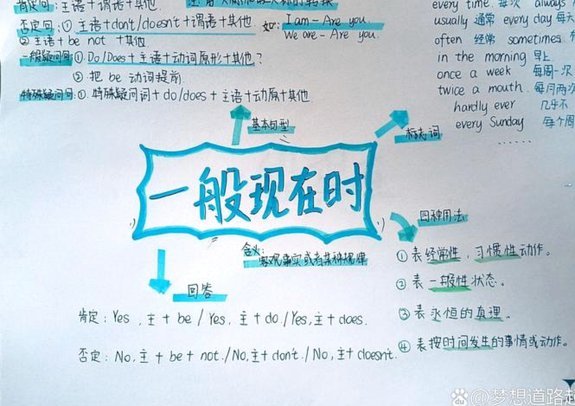 肯定句：主语+谓语+其他
否定句：① 主语+don't/doesn't+谓语+其他
② 主语+be not +其他
一般疑问句：① Do/Does+主语+动词原形+其他？
② 把 be 动词提前
特殊疑问句：① 特殊疑问词+do/does+主语+动原+其他
如：I am — Are you.
We are — Are you.
every time 每次 always
usually 通常 every day 每天
often 经常 sometimes
in the morning 早上
once a week 每周一次
twice a mouth 每月两次
hardly ever 几乎不
every Sunday 每个周
······
基本句型
标志词
一般现在时
含义：
客观事实或者某种规律
回答
肯定：Yes, 主+be / Yes, 主+do. / Yes, 主+does.
否定：No, 主+be+not. / No, 主+don't. / No, 主+doesn't.
四种用法
① 表经常性，习惯性动作。
② 表一般性状态。
③ 表永恒的真理。
④ 表按时间发生的事情或动作。
@梦想道路起